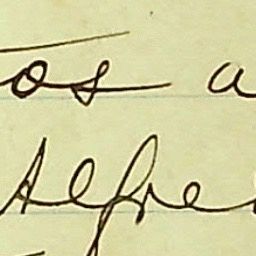 os a
Alfre